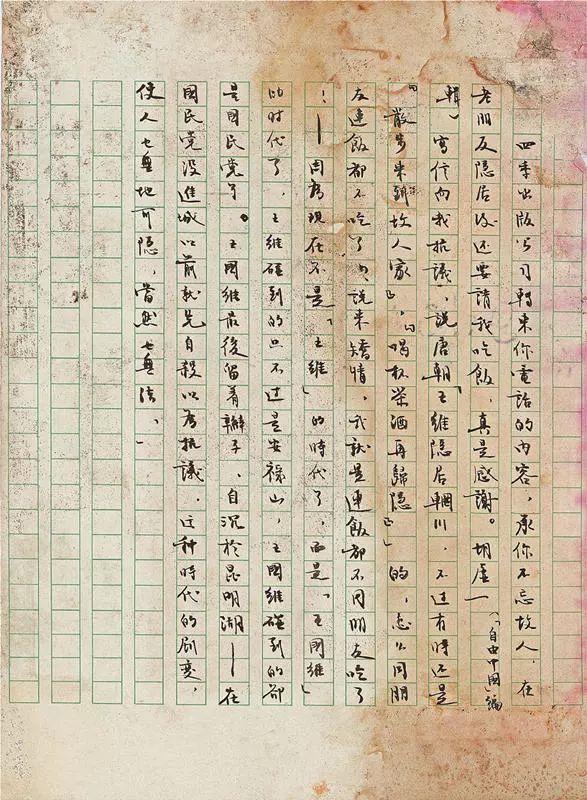 四季出版公司轉来你電話的内容，承你不忘故人，在
老朋友隐居後还要請我吃飯，真是感謝。胡虚一（「自由中國」編
輯）寫信向我抗議，說唐朝王維隐居輞川，不过有時还是
「散步来到故人家」，「喝杯茶酒再歸隐」的，怎么同朋
友連飯都不吃了，說来矯情，我就是連飯都不同朋友吃了
！—因為現在不是「王維」的時代了，而是「王國維」
的时代了，王維碰到的只不过是安祿山，王國維碰到的卻
是國民党了。王國維最後留着辮子、自沉於昆明湖——在
國民党没進城以前就先自殺以為抗議，这种時代的剧变，
使人也無地可隐，當然也無法